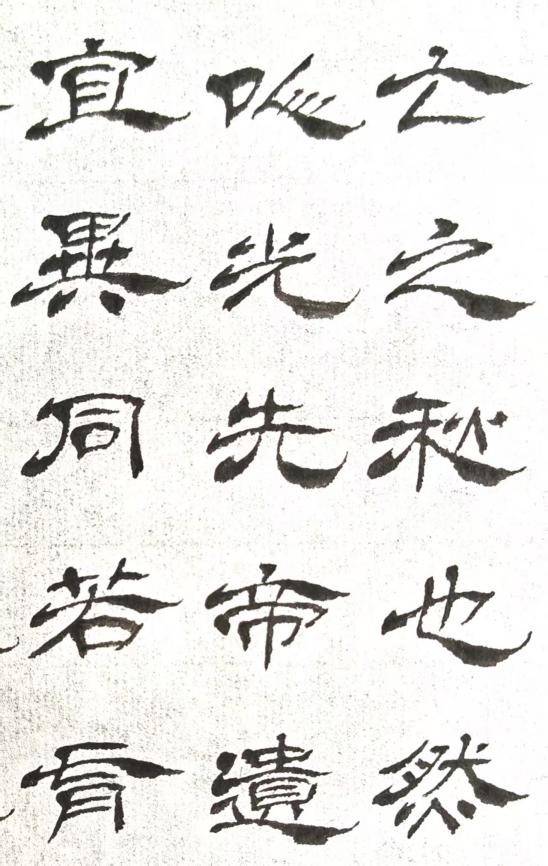 亡之秋也然
以光先帝遺
宜異同若有